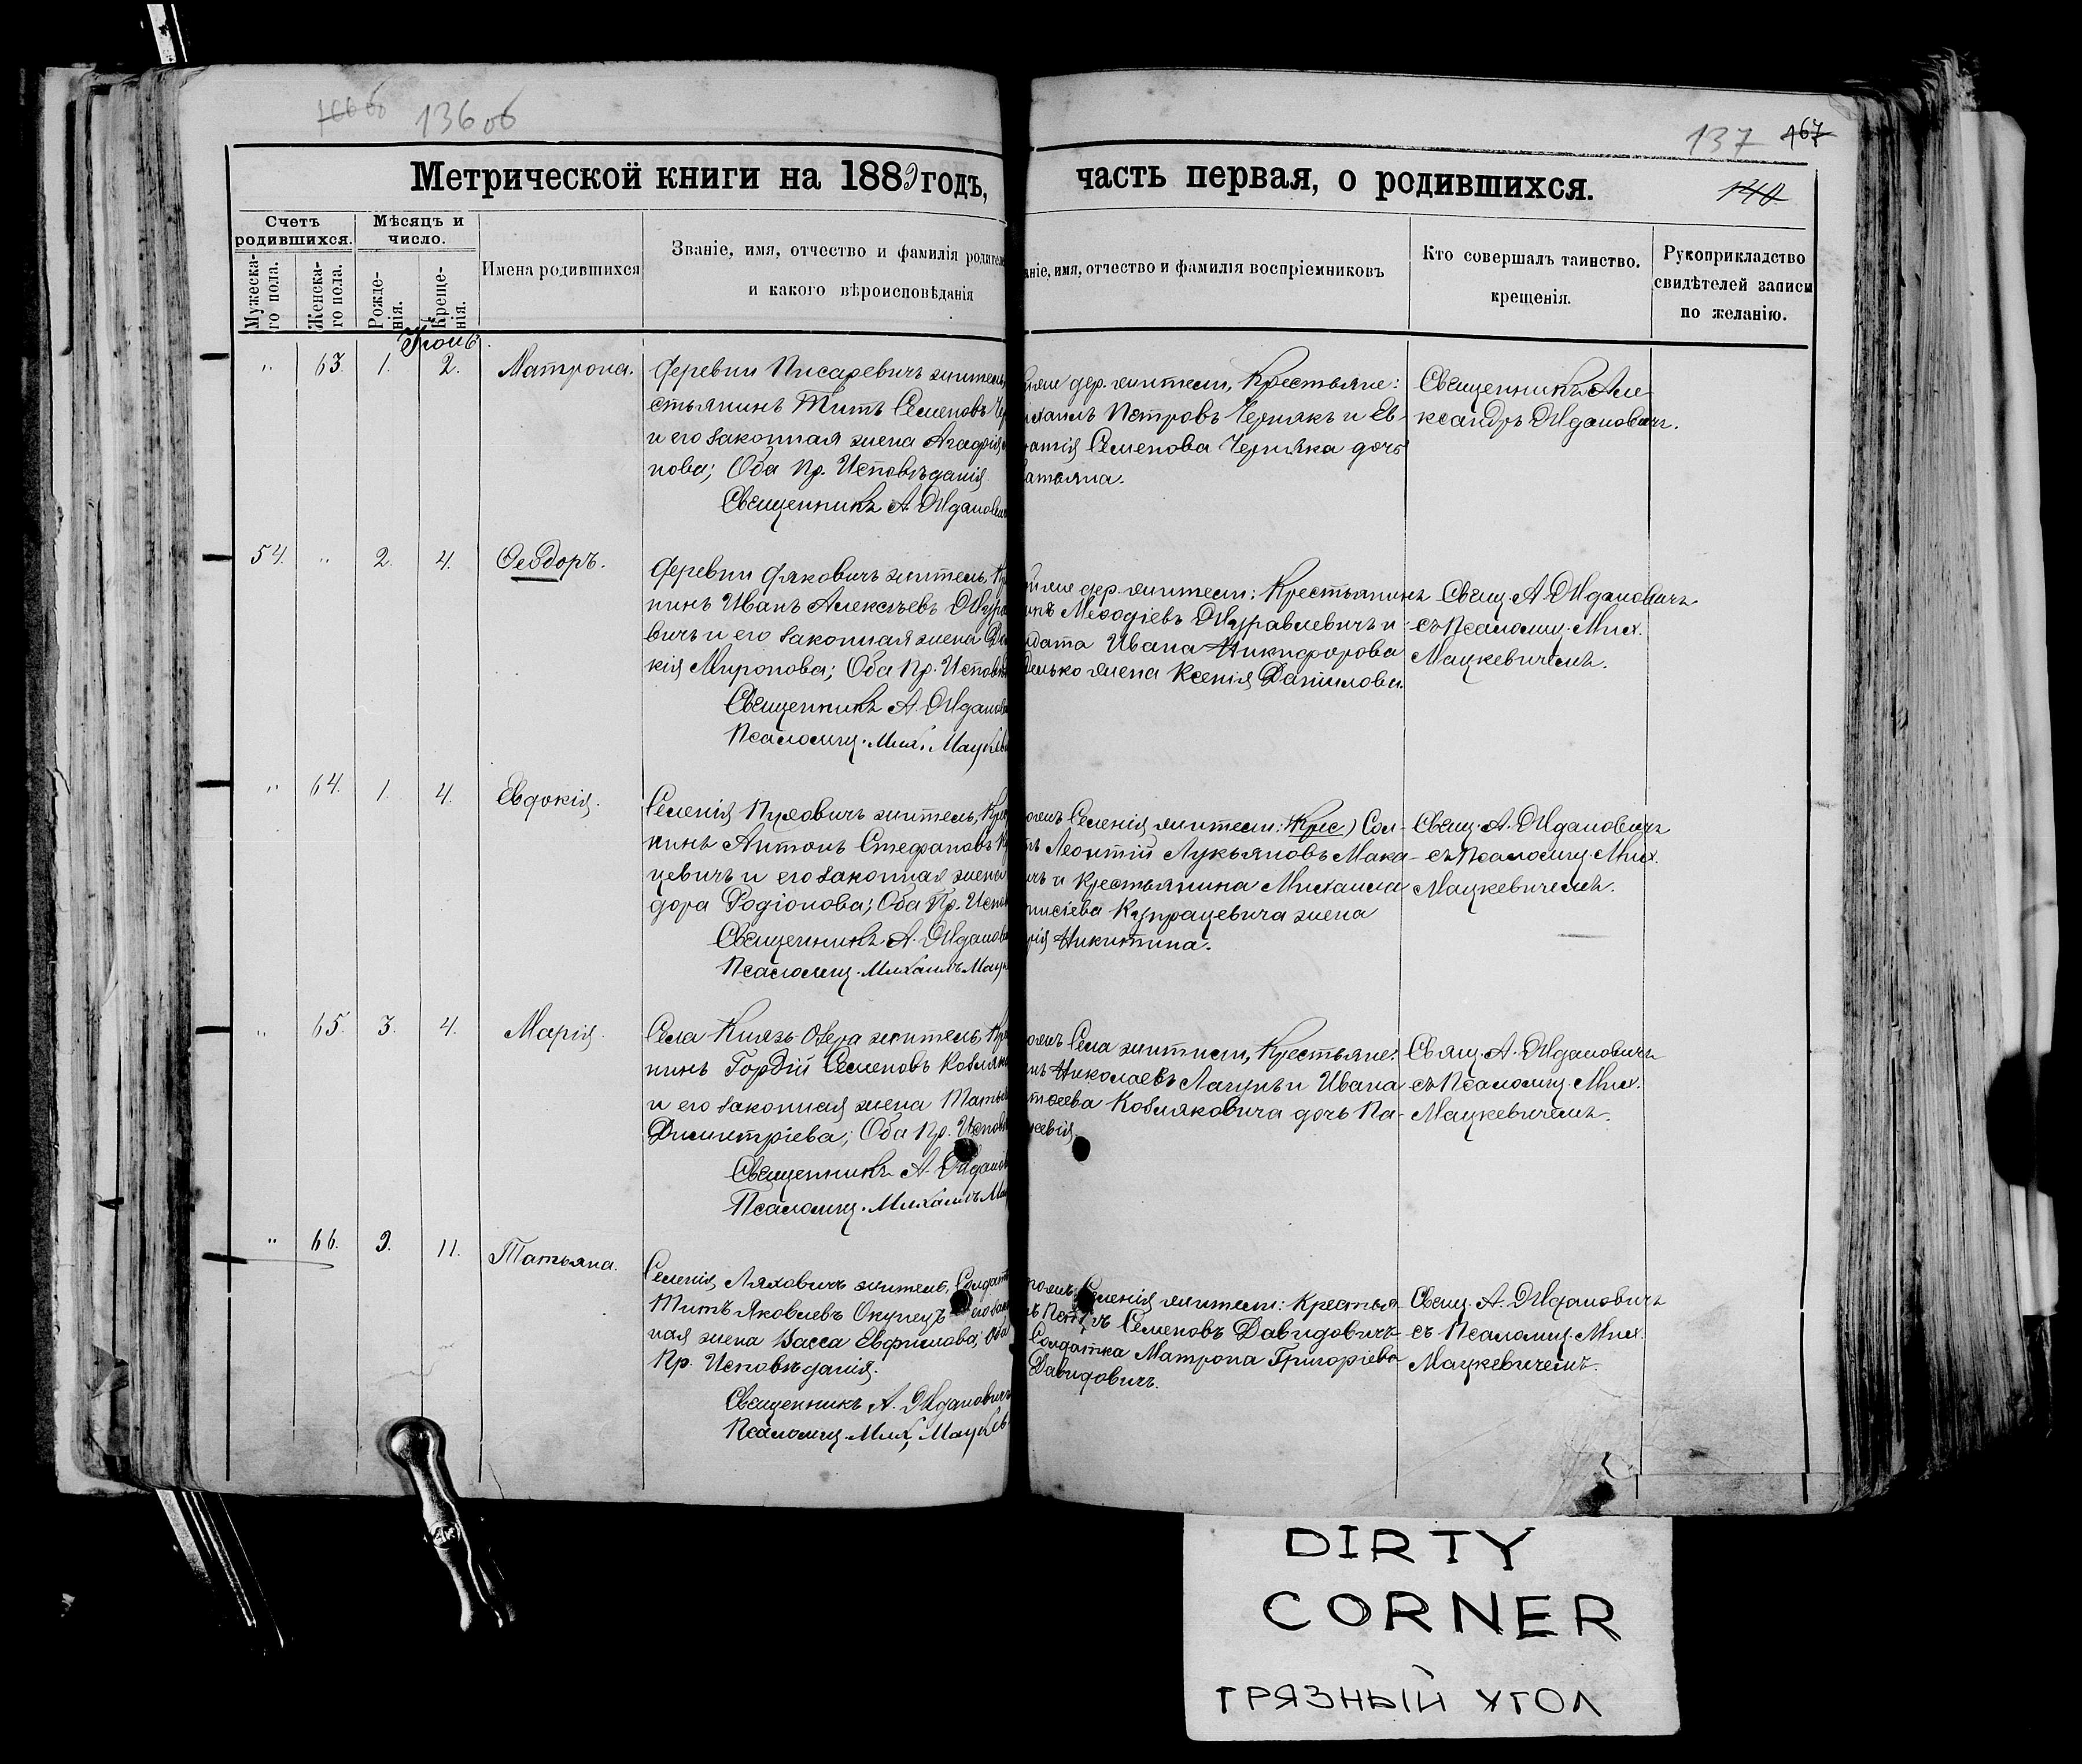 136об
137 167
140
Метрической книги на 1889 годъ, часть первая, о родившихся.
Счетъ родившихся.
Мѣсяцъ и число.
Мужеска-го пола.
Женска-го пола.
Рожде-нія.
Креще-нія.
Имена родившихся
Званіе, имя, отчество и фамилія родител
и какого вѣроисповѣданія
аніе, имя, отчество и фамилія воспріемниковъ
Кто совершалъ таинство.
крещенія.
Рукоприкладство
свидѣтелей записи
по желанію.
Іюнь
" 63. 1. 2. Матрона.
Деревни Писаревичъ житель
стьянинъ Титъ Семеновъ Че
и его законная жена Агафія
нова; Оба Пр. Исповѣданія
Священникъ А. Ждanович
дер. жители, Крестьяне:
ихаилъ Петровъ Чернякъ и Ев-
Семенова Черняка дочь
атьяна.
Священникъ Але
ксандръ Ждановичъ.
54. " 2. 4. Ѳеодоръ.
Деревни Дяковичъ житель, Кр
нинъ Иванъ Алексѣевъ Жура
вичъ и его законная жена Ев
кія Миронова; Оба Пр. Исповѣ
Священникъ А. Жданов
Псаломщ. Мих. Мацкев
дер. жители: Крестьянинъ
Меѳодіевъ Журавлевичъ и
дата Ивана Никифорова
жена Ксенія Данилова.
Свящ. А. Ждановичъ
съ Псаломщ. Мих.
Мацкевичемъ.
" 64. 1. 4. Евдокія.
Селенія Пуховичъ житель, Кре
нинъ Антонъ Стефановъ К
цевичъ и его законная жена
дора Родіонова; Оба Пр. Испов
Священникъ А. Жданов
Псаломщ. Михаилъ Мацк
Селенія жители: (Крес) Сол-
Леонтій Лукьяновъ Мака-
ичъ и Крестьянина Михаила
нисіева Купрацевича жена
рія Никитина.
Свящ. А. Ждановичъ
съ Псаломщ. Мих.
Мацкевичемъ.
" 65. 3. 4. Марія.
Села Князь-Озера житель, Кре
нинъ Гордій Семеновъ Кобляко
и его законная жена Татья
Димитріева; Оба Пр. Исповѣ
Священникъ А. Жданов
Псаломщ. Михаилъ Ма
Села жители, Крестьяне:
Николаевъ Лагунъ и Ивана
Кобляковича дочь Па-
кевія.
Свящ. А. Ждановичъ
съ Псаломщ. Мих.
Мацкевичемъ.
" 66. 9. 11. Татьяна.
Селенія Ляховичъ житель, Солдатъ
Титъ Яковлевъ Окунецъ и его зако
ная жена Васса Евфимова; Оба
Пр. Исповѣданія.
Священникъ А. Ждановичъ
Псаломщ. Мих. Мацкев
Селенія жители: Крестья-
Петръ Семеновъ Давидовичъ
Солдатка Матрона Григорьева
Давидовичъ.
Свящ. А. Ждановичъ
съ Псаломщ. Мих.
Мацкевичемъ.
DIRTY
CORNER
ГРЯЗНЫЙ УГОЛ